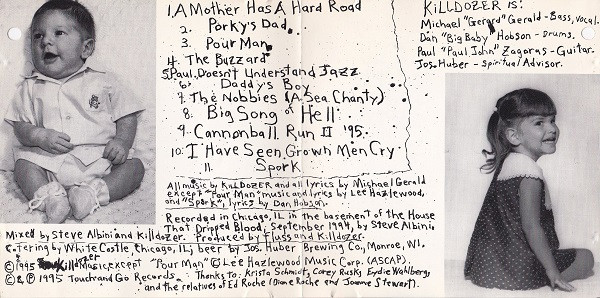 1. A Mother Has A Hard Road
2. Porky's Dad
3. Pour Man
4. The Buzzard
5. Paul Doesn't Understand Jazz
6. Daddy's Boy
7. The Nobbies (A Sea Chanty)
8. Big Song of Hell
9. Cannonball Run II '95
10. I Have Seen Grown Men Cry
11. Spork
KILLDOZER IS:
Michael "Gerard" Gerald - Bass, vocal.
Dan "Big Baby" Hobson - Drums.
Paul "Paul John" Zagoras - Guitar.
Jos. Huber - Spiritual Advisor.
All music by KILLDOZER and all lyrics by Michael Gerald
except "Pour Man", music and lyrics by Lee Hazlewood,
and "Spork", lyrics by Dan Hobson.
Recorded in Chicago, IL in the basement of the House
That Dripped Blood, September 1994, by Steve Albini
Mixed by Steve Albini and Killdozer. Produced by Fluss and Killdozer.
Catering by White Castle, Chicago, IL; beer by Jos. Huber Brewing Co, Monroe, WI.
© 1995 Killdozer Music, except "Pour Man" © Lee Hazlewood Music Corp. (ASCAP)
© & ℗ 1995 Touch and Go Records. Thanks to: Krista Schmidt, Corey Rusk, Eydie Wahlberg,
and the relatives of Ed Roche (Diane Roche and Joanne Stewart).